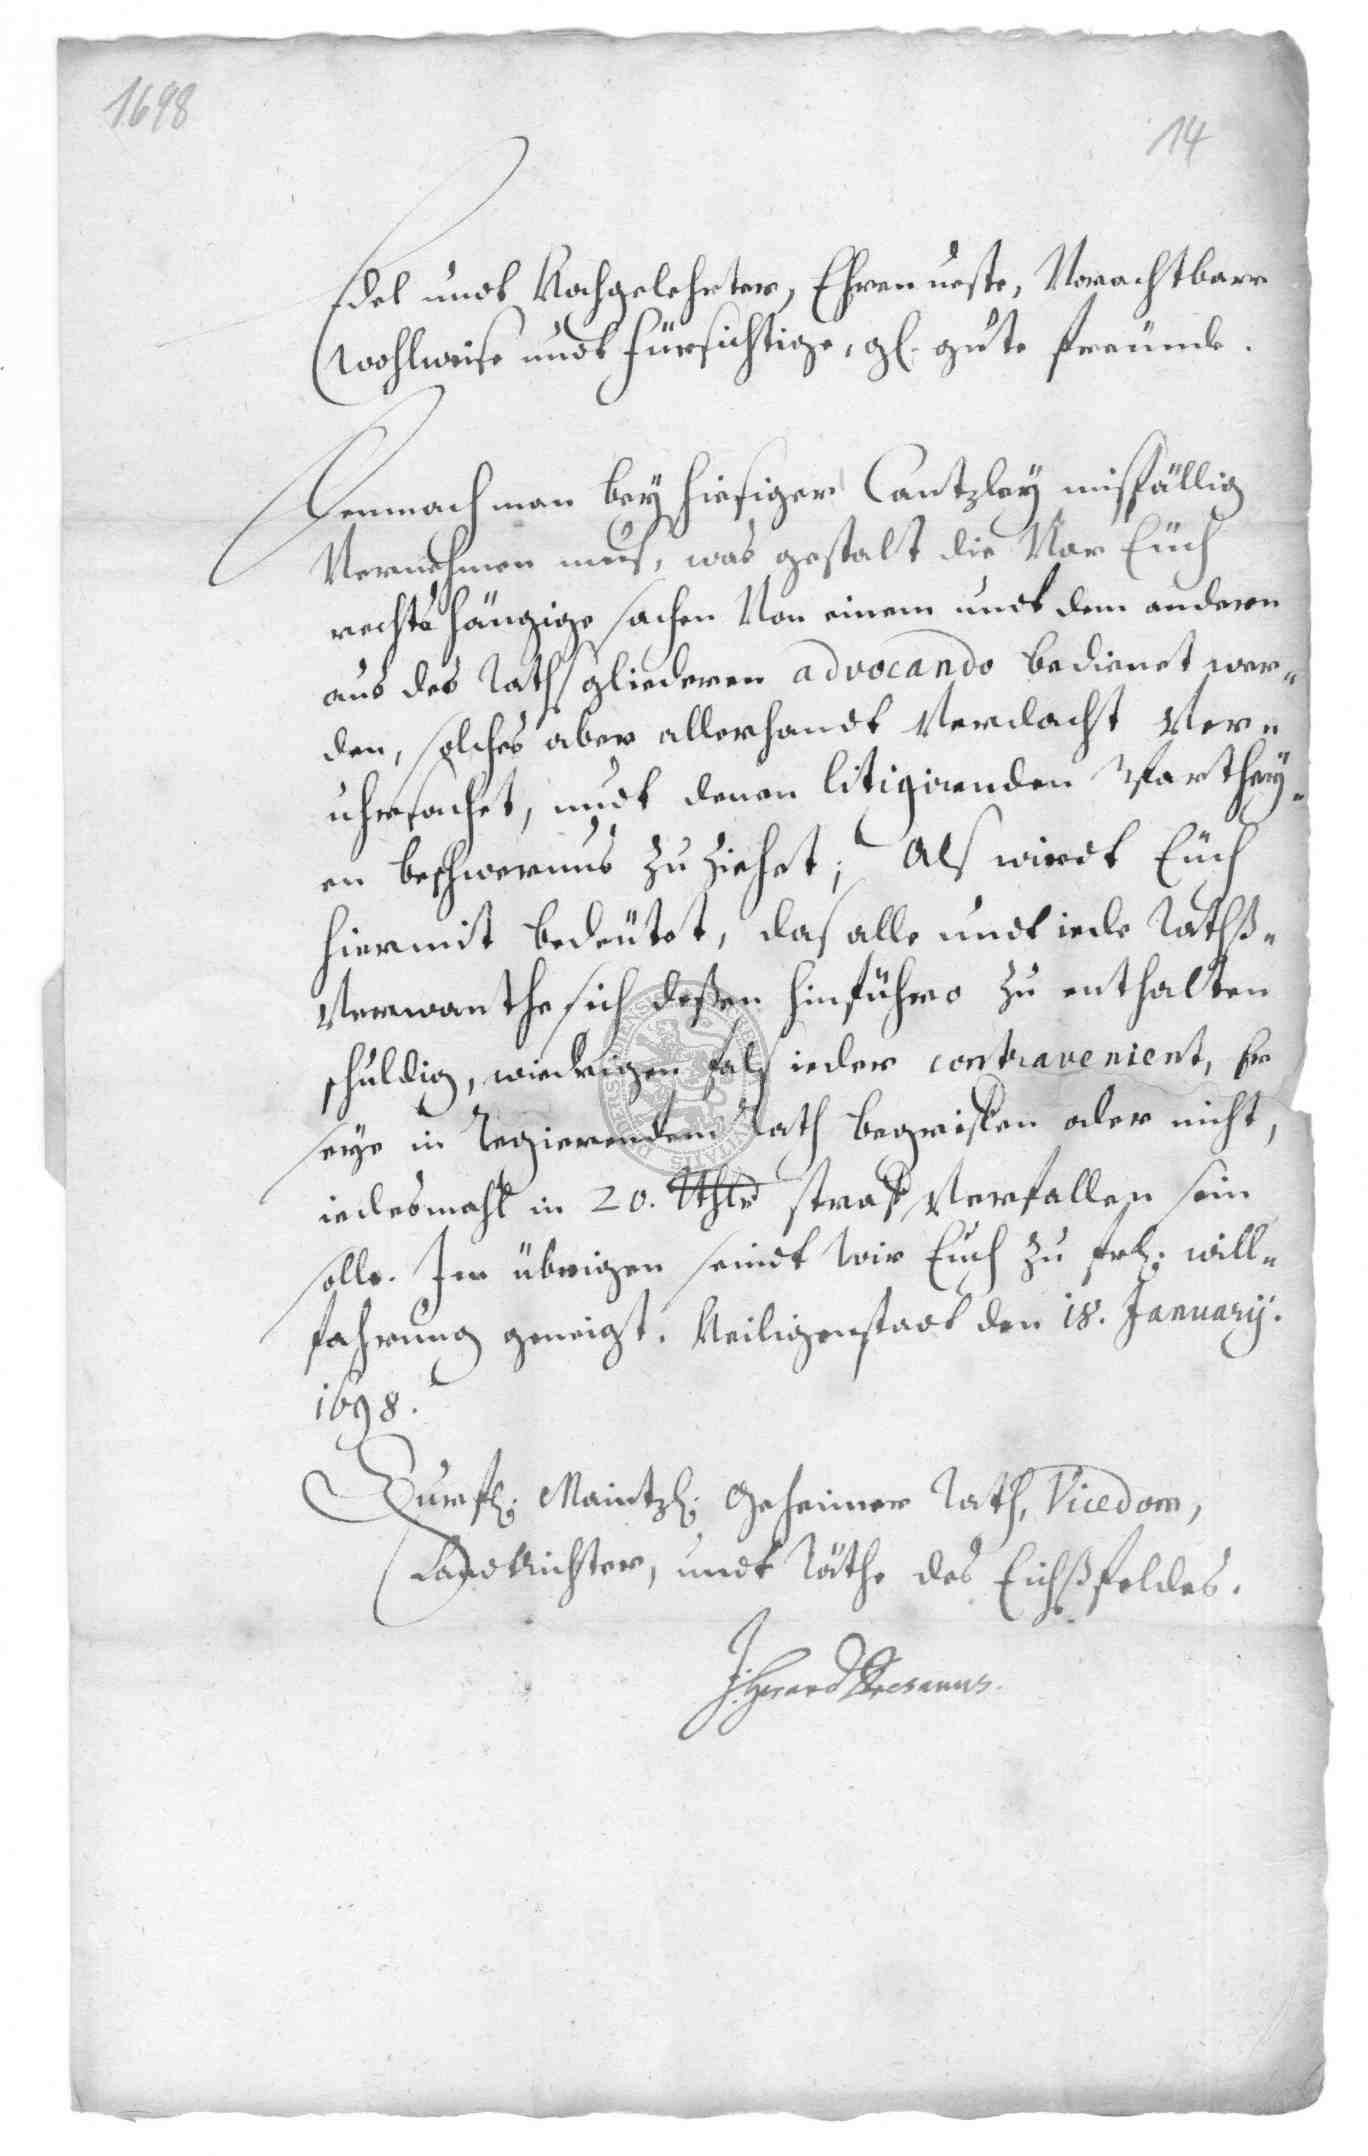 1698
14
Edel undt Hochgelehrter, Ehrenueste, Vorachtbare
Wohlweise undt Fürsichtige, gl. gute Freünde.
Demnach man bey hiesiger Cantzley misfällig
Vernehmen mus, was gestalt die Vor Euch
rechtshängige sachen Von einem undt dem anderen
aus des Raths gliederen advocando bedienet wer„
den, solches aber allerhandt Verdacht Ver„
uhrsachet, undt denen litigirenden Parthey„
en beschwernus zu ziehet; Als wirdt Euch
hiermit bedeütet, das alle undt iede Rathß„
Verwanthe sich deßen hinführo zu enthalten
schuldig, wiedrigen fals ieder contravenient, Er
seye in Regierendem Rath begriffen oder nicht,
iedesmahl in 20. Rthlr straf Verfallen sein
solle. Im übrigen seindt Wir Euch zu frl: will„
fahrung geneigt. Heiligenstadt den 18. January.
1698.
Churfl: Maintzl: Geheimer Rath, Vicedom,
LandRichter, undt Räthe des Eichßfeldes.